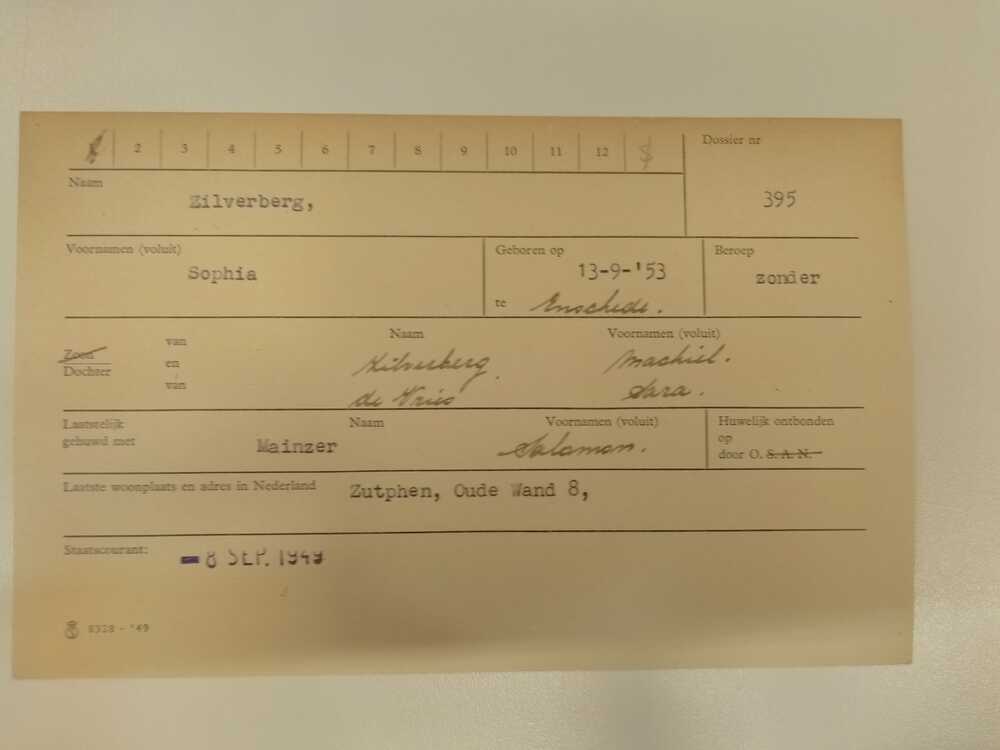 2 3 4 5 6 7 8 9 10 11 12
Dossier nr
395
Naam
Zilverberg,
Voornamen (voluit)
Sophia
Geboren op
13-9-'53
te Enschede.
Beroep
zonder
Naam Voornamen (voluit)
Zoon van Zilverberg Machiel.
Dochter en
van de Vries Sara.
Laatstelijk
gehuwd met
Naam
Mainzer
Voornamen (voluit)
Salomon.
Huwelijk ontbonden
op
door O. S. A. N.
Laatste woonplaats en adres in Nederland Zutphen, Oude Wand 8,
Staatscourant: - 8 SEP. 1949
8328 - '49